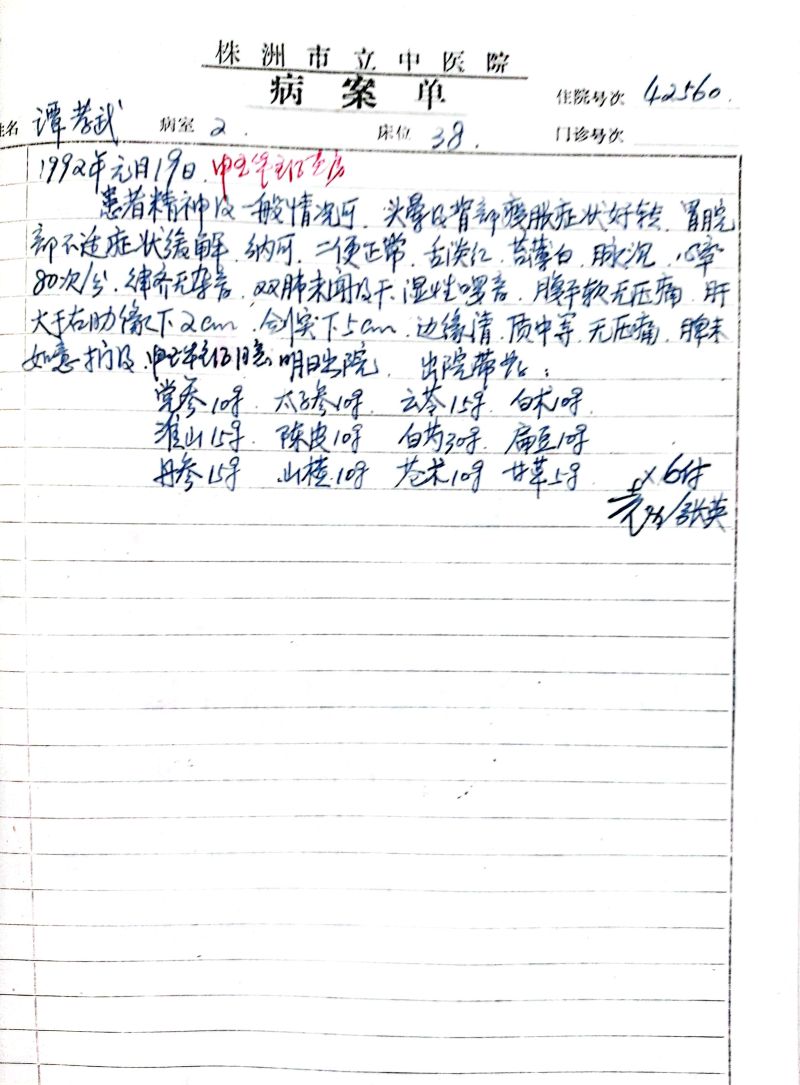 株洲市立中医院
病案单
住院号次 42560.
姓名 谭孝武 病室 2. 床位 38. 门诊号次
1992年元月19日. 申主任查房
患者精神及一般情况可. 头晕及背部症状好转. 胃脘
部不适症状缓解. 纳可. 二便正常. 舌淡红. 苔薄白. 脉沉. 心率
80次/分. 律齐无杂音. 双肺未闻及干湿性啰音. 腹平软无压痛. 肝
大于右肋缘下2cm. 剑突下5cm. 边缘清. 质中等. 无压痛. 脾未
扪及. 明日出院. 出院带药:
党参10g 太子参10g. 云苓15g. 白术10g.
淮山15g. 陈皮10g 白芍30g. 扁豆10g
丹参15g 山楂10g 苍术10g 甘草5g ×6付
张英